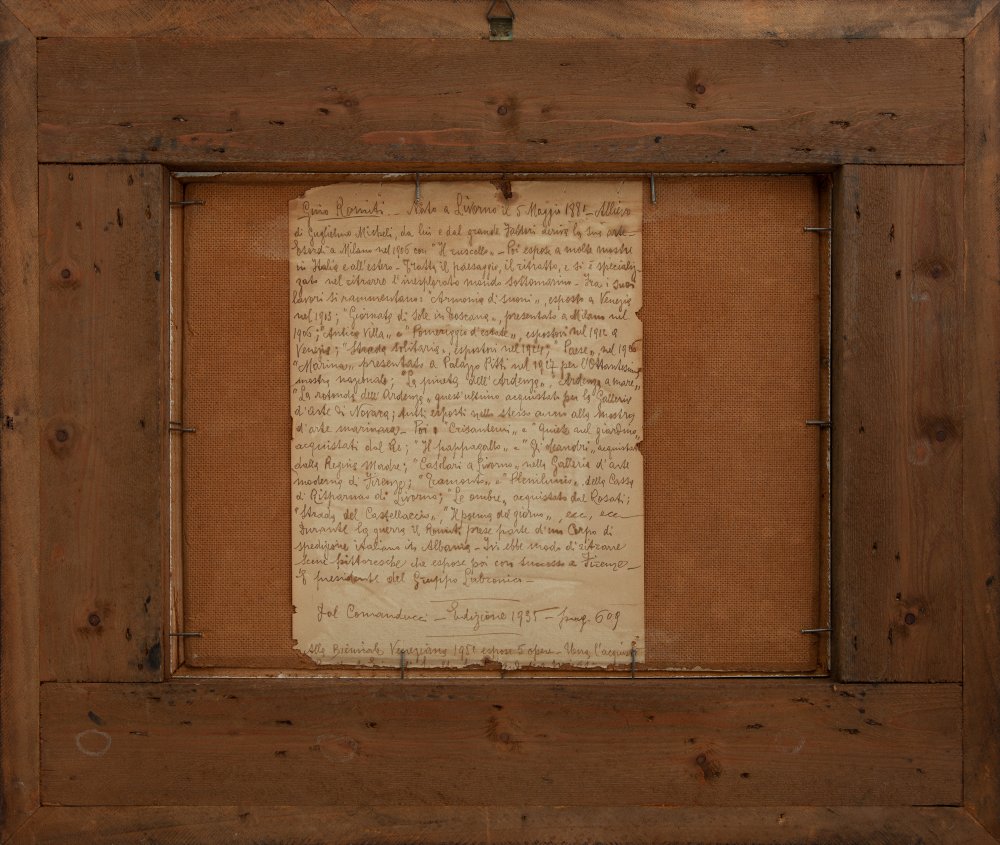 Gino Romiti — Nato a Livorno il 5 Maggio 1881 — Allievo
di Guglielmo Micheli, da lui e dal grande Fattori derivò la sua arte —
Esordì a Milano nel 1906 con "Il ruscello„ — Poi espose a molte mostre
in Italia e all'estero — Trattò il paesaggio, il ritratto, e si è specializ
zato nel ritrarre l'inesplorato mondo sottomarino — Fra i suoi
lavori si rammentano: "Armonia di suoni„, esposto a Venezia
nel 1913; "Giornata di Sole in Toscana„, presentato a Milano nel
1906; "Antica Villa„ e "Pomeriggio d'estate„, espostori nel 1912 a
Venezia; "Strada solitaria„, espostori nel 1924; "Paese„, nel 1906
"Marina„ presentato a Palazzo Pitti nel 1927 per l'Ottantesima
mostra nazionale; "La pineta dell'Ardenza„; "Ardenza a mare„,
"La rotonda dell'Ardenza„ quest'ultimo acquistato per la Galleria
d'arte di Novara; tutti esposti nello stesso anno alla mostra
d'arte marinara — Poi: "Crisantemi„ e "Quiete nel giardino„
acquistati dal Re; "Il pappagallo„ e "Oleandri„ acquistati
dalla Regina Madre; "Casolari a Livorno„ nella Galleria d'arte
moderna di Firenze; "Tramonto„ e "Plenilunio„ della Cassa
di Risparmio di Livorno; "Le ombre„ acquistato dal Rosati;
"Strada del Castellaccio„, "Il poema del giorno„, ecc, ecc
Durante la guerra il Romiti prese parte d'un Corpo di
spedizione italiano in Albania — Ivi ebbe modo di ritrarre
scene pittoresche che espose poi con successo a Firenze —
È presidente del Gruppo Labronico —
Dal Comanducci — Edizione 1935 — pag. 609
Alla Biennale Veneziana 1951 espose 5 opere — Una l'acquistò